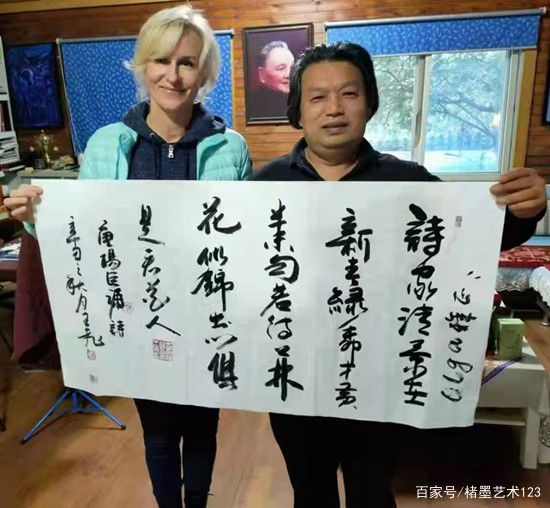 詩家清景在
新春綠柳才黄
半未匀若待上林
花似錦出门俱
是看花人
唐楊巨源詩
辛丑之秋月
百家号/楮墨艺术123